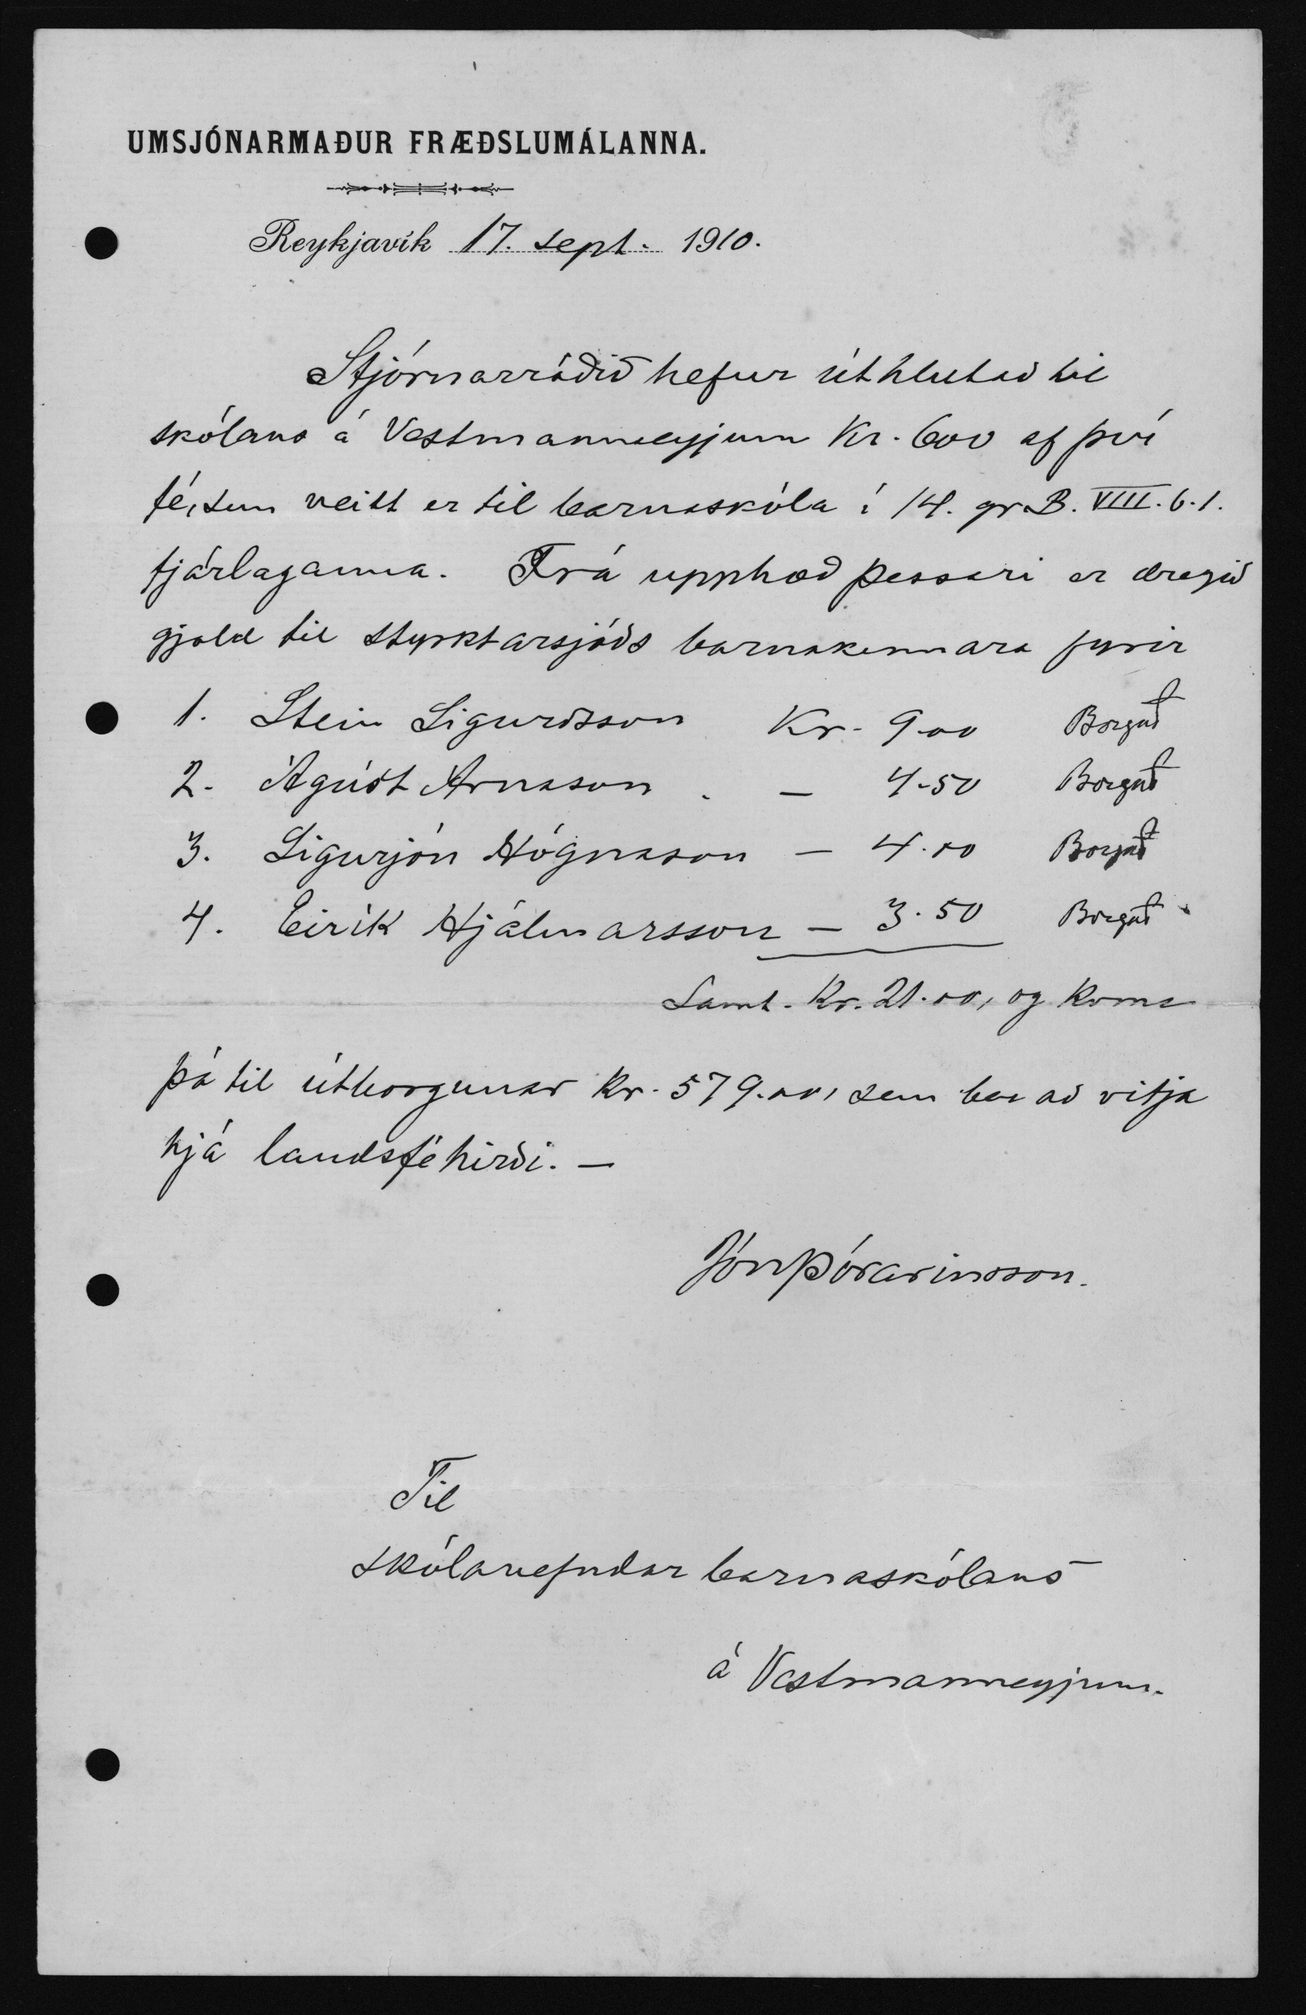 UMSJÓNARMAÐUR FRÆÐSLUMÁLANNA.
Reykjavík 17. sept. 1910.
Stjórnarráðið hefur úthlutað til
skólans á Vestmanneyjum Kr. 600 af því
fé, sem veitt er til barnaskóla í 14. gr. B. VIII. b. 1.
fjárlaganna. Frá upphæð þessari er dregið
gjald til styrktarsjóðs barnakennara fyrir
1. Stein Sigurðsson Kr. 9.00 Borgað
2. Ágúst Árnason. — 4.50 Borgað
3. Sigurjón Högnason — 4.00 Borgað
4. Eirík Hjálmarsson — 3.50 Borgað
Samt. Kr. 21.00, og koma
þá til útborgunar Kr. 579.00, sem ber að vitja
hjá landsféhirði. —
Jón Þórarinsson.
Til
skólanefndar barnaskólans
á Vestmanneyjum.